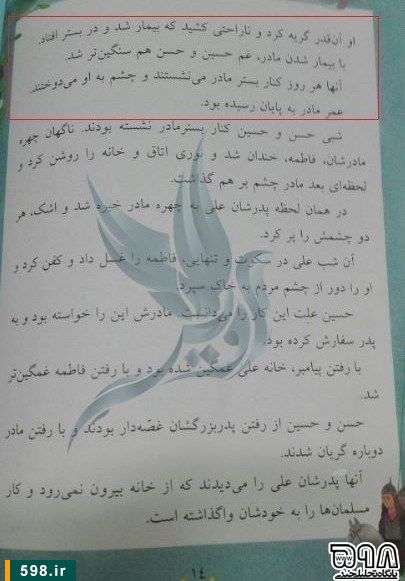 او آن‌قدر گریه کرد و ناراحتی کشید که بیمار شد و در بستر افتاد.
با بیمار شدن مادر، غم حسین و حسن هم سنگین‌تر شد.
آنها هر روز کنار بستر مادر می‌نشستند و چشم به او می‌دوختند.
عمر مادر به پایان رسیده بود.
شبی حسن و حسین کنار بستر مادر نشسته بودند. ناگهان چهره
مادرشان، فاطمه، خندان شد و نوری اتاق و خانه را روشن کرد و
لحظه‌ای بعد مادر چشم بر هم گذاشت.
در همان لحظه پدرشان علی به چهره مادر خیره شد و اشک، هر
دو چشمش را پر کرد.
آن شب علی در سکوت و تنهایی، فاطمه را غسل داد و کفن کرد و
او را دور از چشم مردم به خاک سپرد.
حسین علت این کار را می‌دانست. مادرش این را خواسته بود و به
پدر سفارش کرده بود.
با رفتن پیامبر، خانه علی غمگین شده بود و با رفتن فاطمه غمگین‌تر
شد.
حسن و حسین از رفتن پدربزرگشان غصّه‌دار بودند و با رفتن مادر
دوباره گریان شدند.
آنها پدرشان علی را می‌دیدند که از خانه بیرون نمی‌رود و کار
مسلمان‌ها را به خودشان واگذاشته است.
۱۴
598.ir
۵۹۸